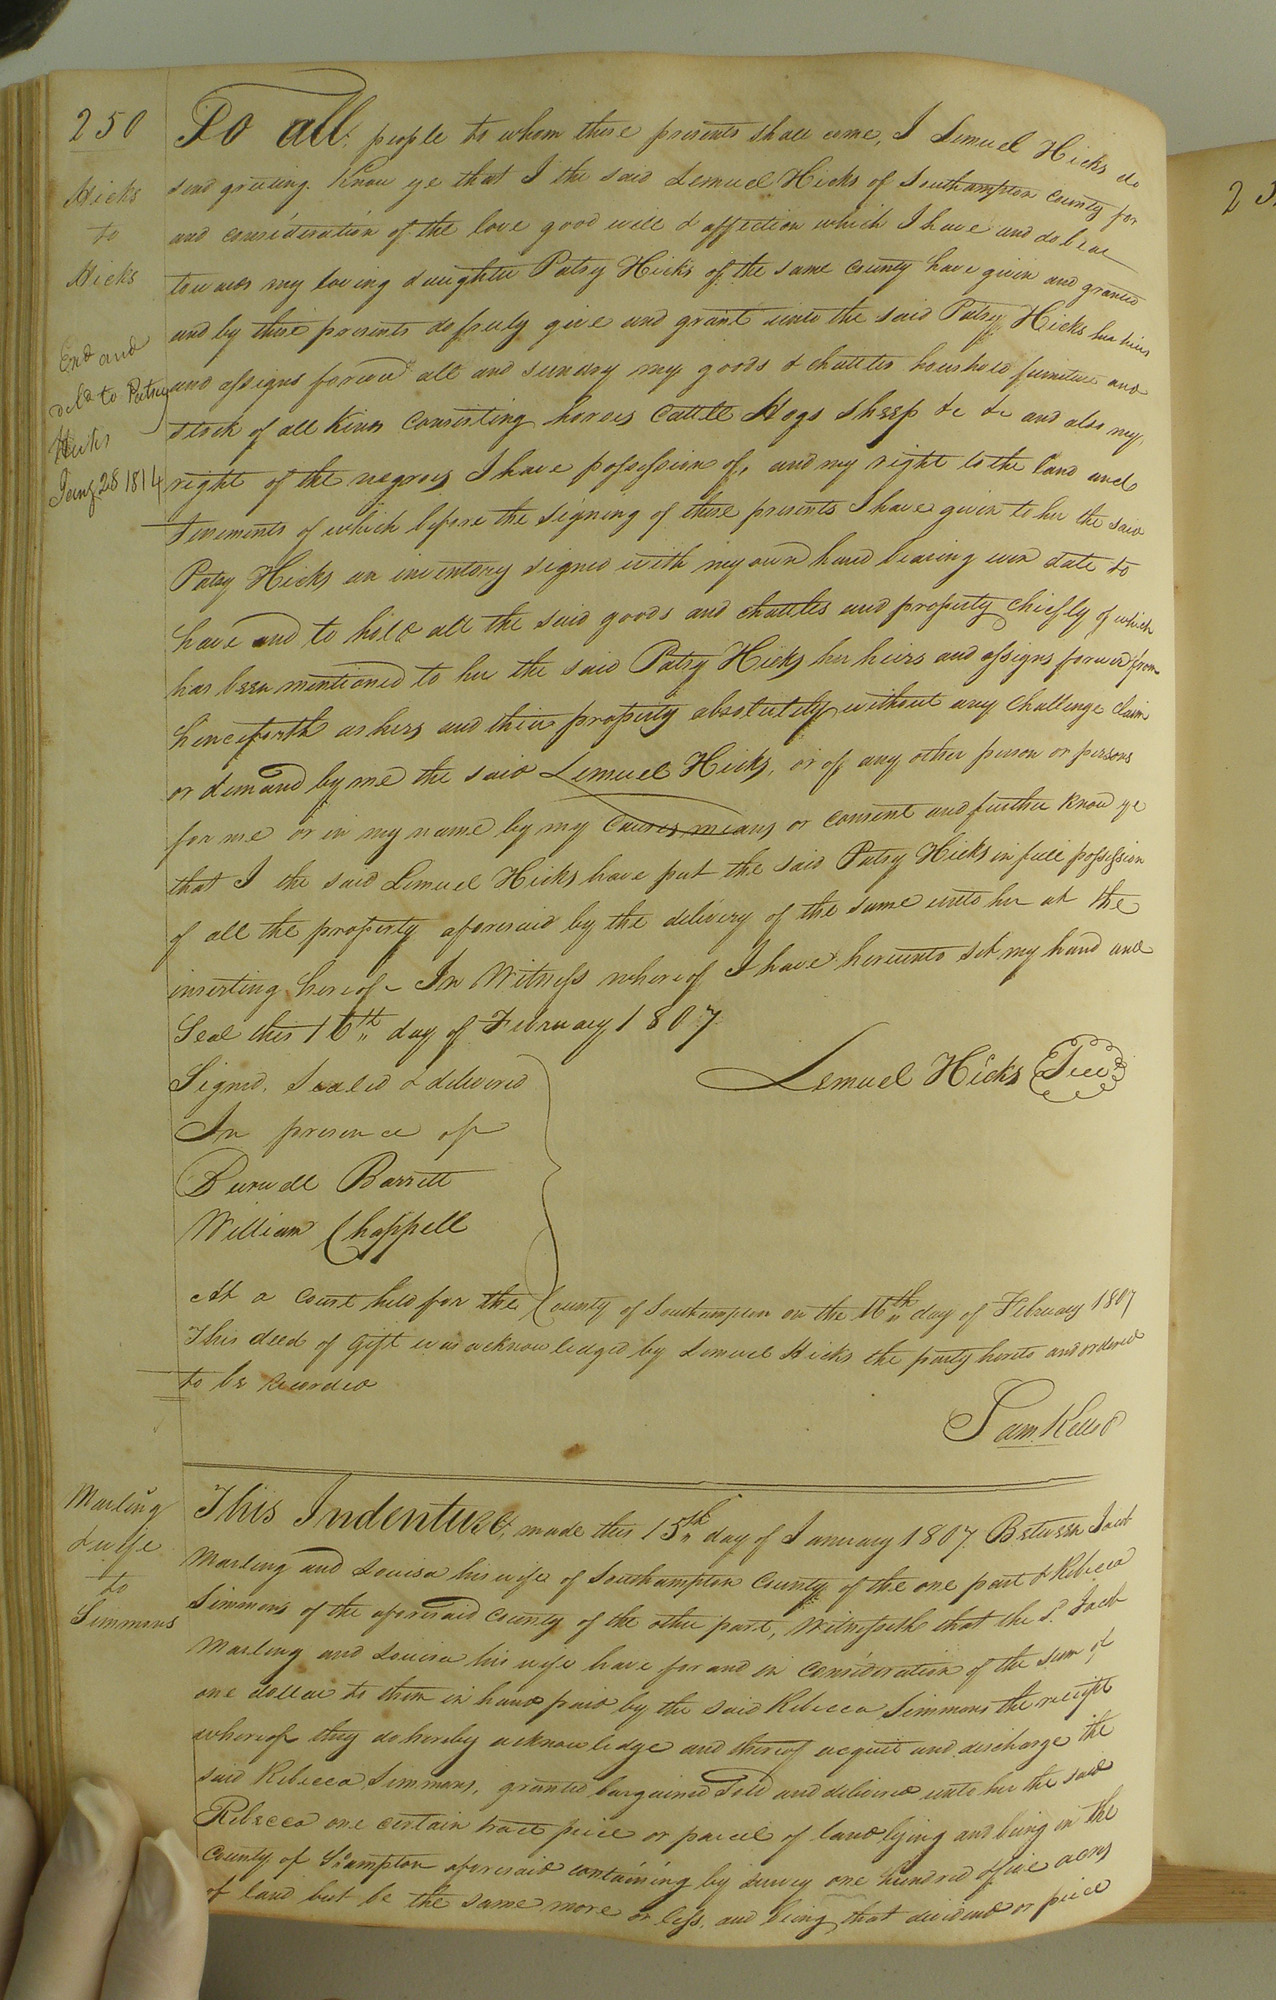 250
Hicks
to
Hicks
Exd and
deld to Patsey
Hicks
Jany 28 1814
To all people to whom these presents shall come, I Lemuel Hicks do
send greeting. Know ye that I the said Lemuel Hicks of Southampton County for
and consideration of the love good will & affection which I have and do bear
towards my loving daughter Patsy Hicks of the same county have given and granted
and by these presents do freely give and grant unto the said Patsy Hicks her heirs
and assigns forever all and sundry my goods & chattles household furniture and
stock of all kinds consisting horses Cattle Hogs Sheep &c &c and also my
right of the negroes I have possession of, and my right to the land and
tenements of which before the signing of these presents I have given to her the said
Patsy Hicks an inventory signed with my own hand bearing even date to
have and to hold all the said goods and chattles and property chiefly of which
has been mentioned to her the said Patsy Hicks her heirs and assigns forever from
henceforth as hers and their property absolutely without any challenge claim
or demand by me the said Lemuel Hicks, or of any other person or persons
for me or in my name by my causes means or consent and further know ye
that I the said Lemuel Hicks have put the said Patsy Hicks in full possession
of all the property aforesaid by the delivery of the same unto her at the
inserting hereof - In Witness whereof I have hereunto set my hand and
Seal this 16th day of February 1807
Lemuel Hicks Seal
Signed, Sealed & delivered
In presence of
Burwell Barrett
William Chappell
At a court held for the County of Southampton on the 16th day of February 1807
This deed of Gift was acknowledged by Lemuel Hicks the party hereto and ordered
to be recorded
Sam. Kello
Marling
& wife
to
Simmons
This Indenture, made this 15th day of January 1807 Between Jacob
Marling and Louisa his wife of Southampton County of the one part & Rebecca
Simmons of the aforesaid County of the other part, Witnesseth that the sd. Jacob
Marling and Louisa his wife have for and in consideration of the sum of
one dollar to them in hand paid by the said Rebecca Simmons the receipt
whereof they do hereby acknowledge and thereof acquit and discharge the
said Rebecca Simmons, granted bargained Sold and delivered unto her the said
Rebecca one certain tract piece or parcel of land lying and being in the
County of Shampton aforesaid containing by survey one hundred & five acres
of land but be the same more or less, and being that dividend or piece